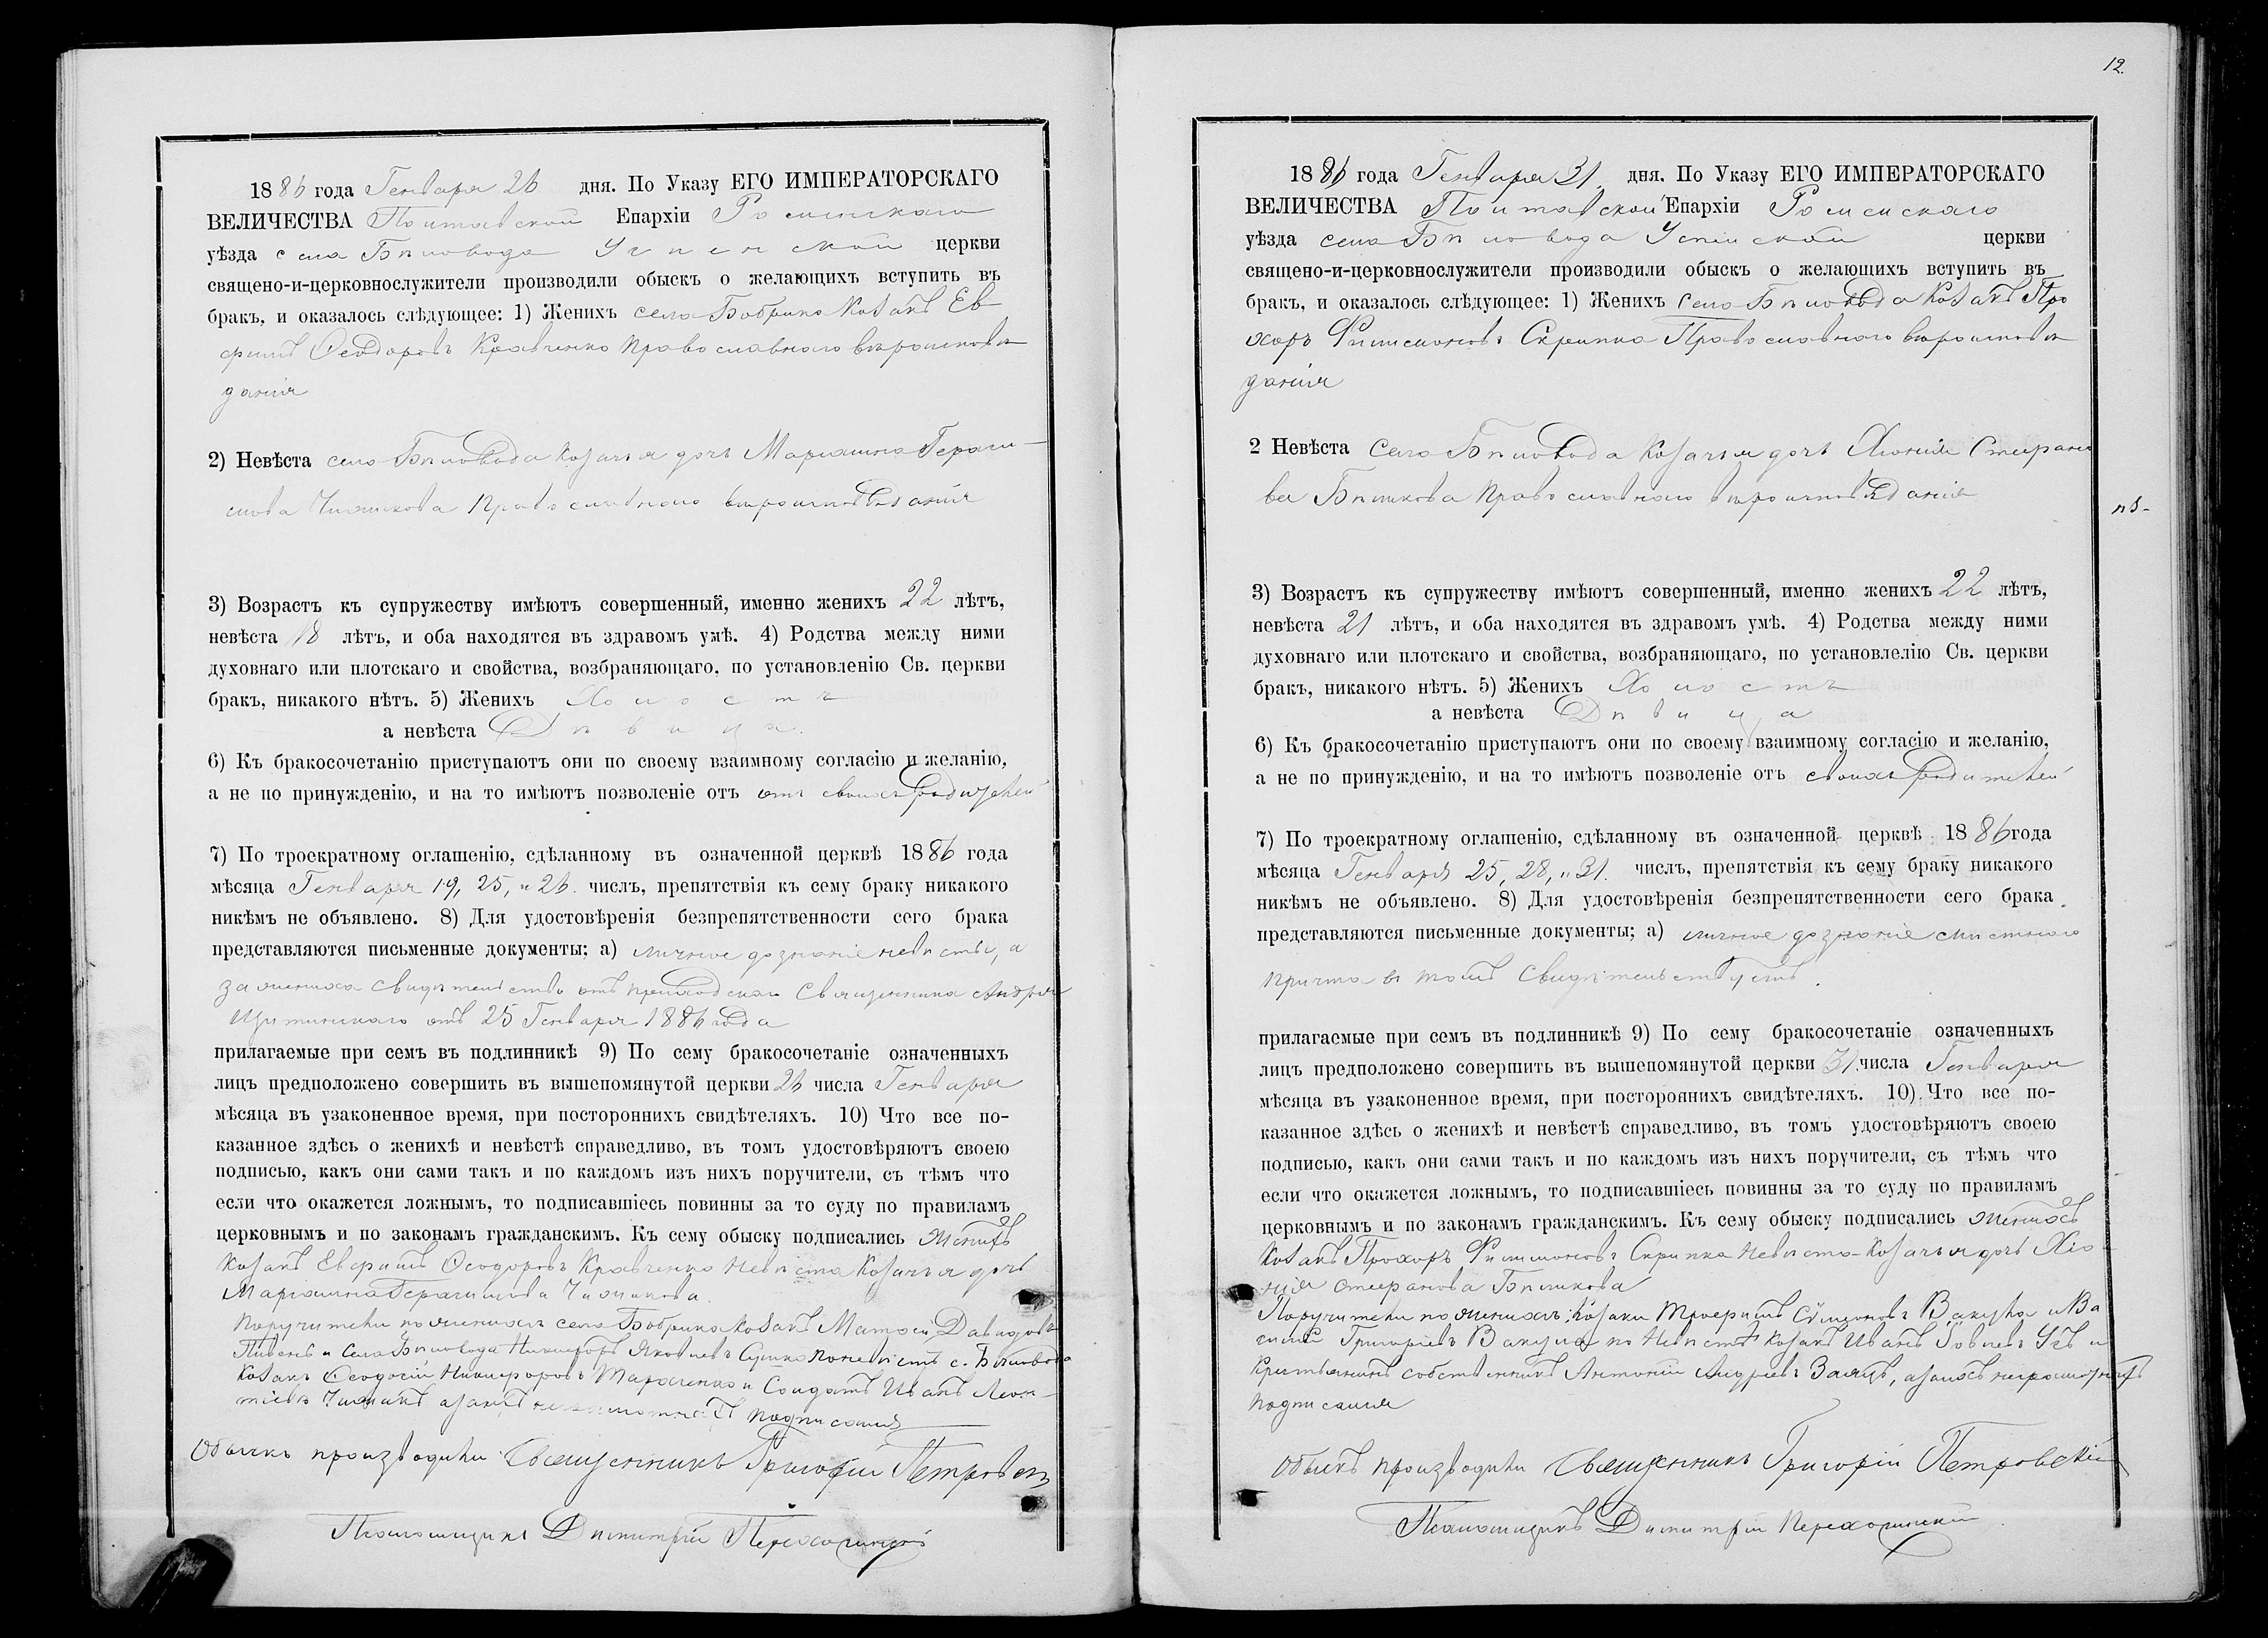 1886 года Генваря 26 дня. По Указу ЕГО ИМПЕРАТОРСКАГО
ВЕЛИЧЕСТВА Полтавской Епархіи Роменскаго
уѣзда села Бѣловода Успенской церкви
священо-и-церковнослужители производили обыскъ о желающихъ вступить въ
бракъ, и оказалось слѣдующее: 1) Женихъ села Бобрика Козакъ Ев
фимъ Ѳеодоровъ Кравченко Православнаго вѣроисповѣ
данія
2) Невѣста села Бѣловода Козачья дочь Маріамна Гераси-
мова Чижикова Православнаго вѣроисповѣданія
3) Возрастъ къ супружеству имѣютъ совершенный, именно женихъ 22 лѣтъ,
невѣста 18 лѣтъ, и оба находятся въ здравомъ умѣ. 4) Родства между ними
духовнаго или плотскаго и свойства, возбраняющаго, по установленію Св. церкви
бракъ, никакого нѣтъ. 5) Женихъ Холостъ
а невѣста Дѣвица.
6) Къ бракосочетанію приступаютъ они по своему взаимному согласію и желанію,
а не по принужденію, и на то имѣютъ позволеніе отъ отъ своихъ родителей
7) По троекратному оглашенію, сдѣланному въ означенной церквѣ 1886 года
мѣсяца Генваря 19, 25, и 26. числъ, препятствія къ сему браку никакого
никѣмъ не объявлено. 8) Для удостовѣренія безпрепятственности сего брака
представляются письменные документы; а) личное дознаніе невѣсты, а
за жениха свидѣтельство отъ приходскаго Священника Андрея
отъ 25 Генваря 1886 года
прилагаемые при семъ въ подлинникѣ 9) По сему бракосочетаніе означенныхъ
лицъ предположено совершить въ вышепомянутой церкви 26 числа Генваря
мѣсяца въ узаконенное время, при постороннихъ свидѣтеляхъ. 10) Что все по-
казанное здѣсь о женихѣ и невѣстѣ справедливо, въ томъ удостовѣряютъ своею
подписью, какъ они сами такъ и по каждомъ изъ нихъ поручители, съ тѣмъ что
если что окажется ложнымъ, то подписавшіесь повинны за то суду по правиламъ
церковнымъ и по законамъ гражданскимъ. Къ сему обыску подписались Женихъ
Козакъ Евфимъ Ѳеодоровъ Кравченко Невѣста Козачья дочь
Маріамна Герасимова Чижикова.
Поручители по женихѣ села Бобрика козакъ Матѳей Давидовъ
и Села Бѣловода Никифоръ Яковлевъ по невѣстѣ с. Бѣловода
Козакъ Ѳеодосій Никифоровъ Тарасенко и Солдатъ Иванъ Леон-
тіевъ Чижикъ а за нихъ неграмотныхъ подписался
Обыскъ производили Священникъ Григорій Петровскій
Псаломщикъ Димитрій
12.
1886 года Генваря 31. дня. По Указу ЕГО ИМПЕРАТОРСКАГО
ВЕЛИЧЕСТВА Полтавской Епархіи Роменскаго
уѣзда села Бѣловода Успенской церкви
священо-и-церковнослужители производили обыскъ о желающихъ вступить въ
бракъ, и оказалось слѣдующее: 1) Женихъ Села Бѣловода Козакъ Про
хоръ Филимоновъ Скрипка Православнаго вѣроисповѣ
данія
2 Невѣста Села Бѣловода Козачья дочь Хіонія Стефано
ва Бѣликова Православнаго вѣроисповѣданія
3) Возрастъ къ супружеству имѣютъ совершенный, именно женихъ 22 лѣтъ,
невѣста 21 лѣтъ, и оба находятся въ здравомъ умѣ. 4) Родства между ними
духовнаго или плотскаго и свойства, возбраняющаго, по установлелію Св. церкви
бракъ, никакого нѣтъ. 5) Женихъ Холостъ
а невѣста Дѣвица
6) Къ бракосочетанію приступаютъ они по своему взаимному согласію и желанію,
а не по принужденію, и на то имѣютъ позволеніе отъ своихъ родителей
7) По троекратному оглашенію, сдѣланному въ означенной церквѣ 1886 года
мѣсяца Генваря 25, 28, и 31. числъ, препятствія къ сему браку никакого
никѣмъ не объявлено. 8) Для удостовѣренія безпрепятственности сего брака
представляются письменные документы; а) личное дознаніе мѣстнаго
причта въ томъ свидѣтельствуетъ.
прилагаемые при семъ въ подлинникѣ 9) По сему бракосочетаніе означенныхъ
лицъ предположено совершить въ вышепомянутой церкви 31. числа Генваря
мѣсяца въ узаконенное время, при постороннихъ свидѣтеляхъ. 10). Что все по-
казанное здѣсь о женихѣ и невѣстѣ справедливо, въ томъ удостовѣряютъ своею
подписью, какъ они сами такъ и по каждомъ изъ нихъ поручители, съ тѣмъ что
если что окажется ложнымъ, то подписавшіесь повинны за то суду по правиламъ
церковнымъ и по законамъ гражданскимъ. Къ сему обыску подписались женихъ
Козакъ Прохоръ Филимоновъ Скрипка Невѣста Козачья дочь Хіо-
нія Стефанова Бѣликова
Поручители по женихѣ: Козаки Трофимъ Вакула и Ва
силій Григоріевъ Вакула по Невѣстѣ Козакъ Иванъ и
Крестьянинъ собственникъ Антоній Андреевъ Заяцъ, а за нихъ неграмотныхъ
подписался
Обыскъ производили Священникъ Григорій Петровскій
Псаломщикъ Димитрій